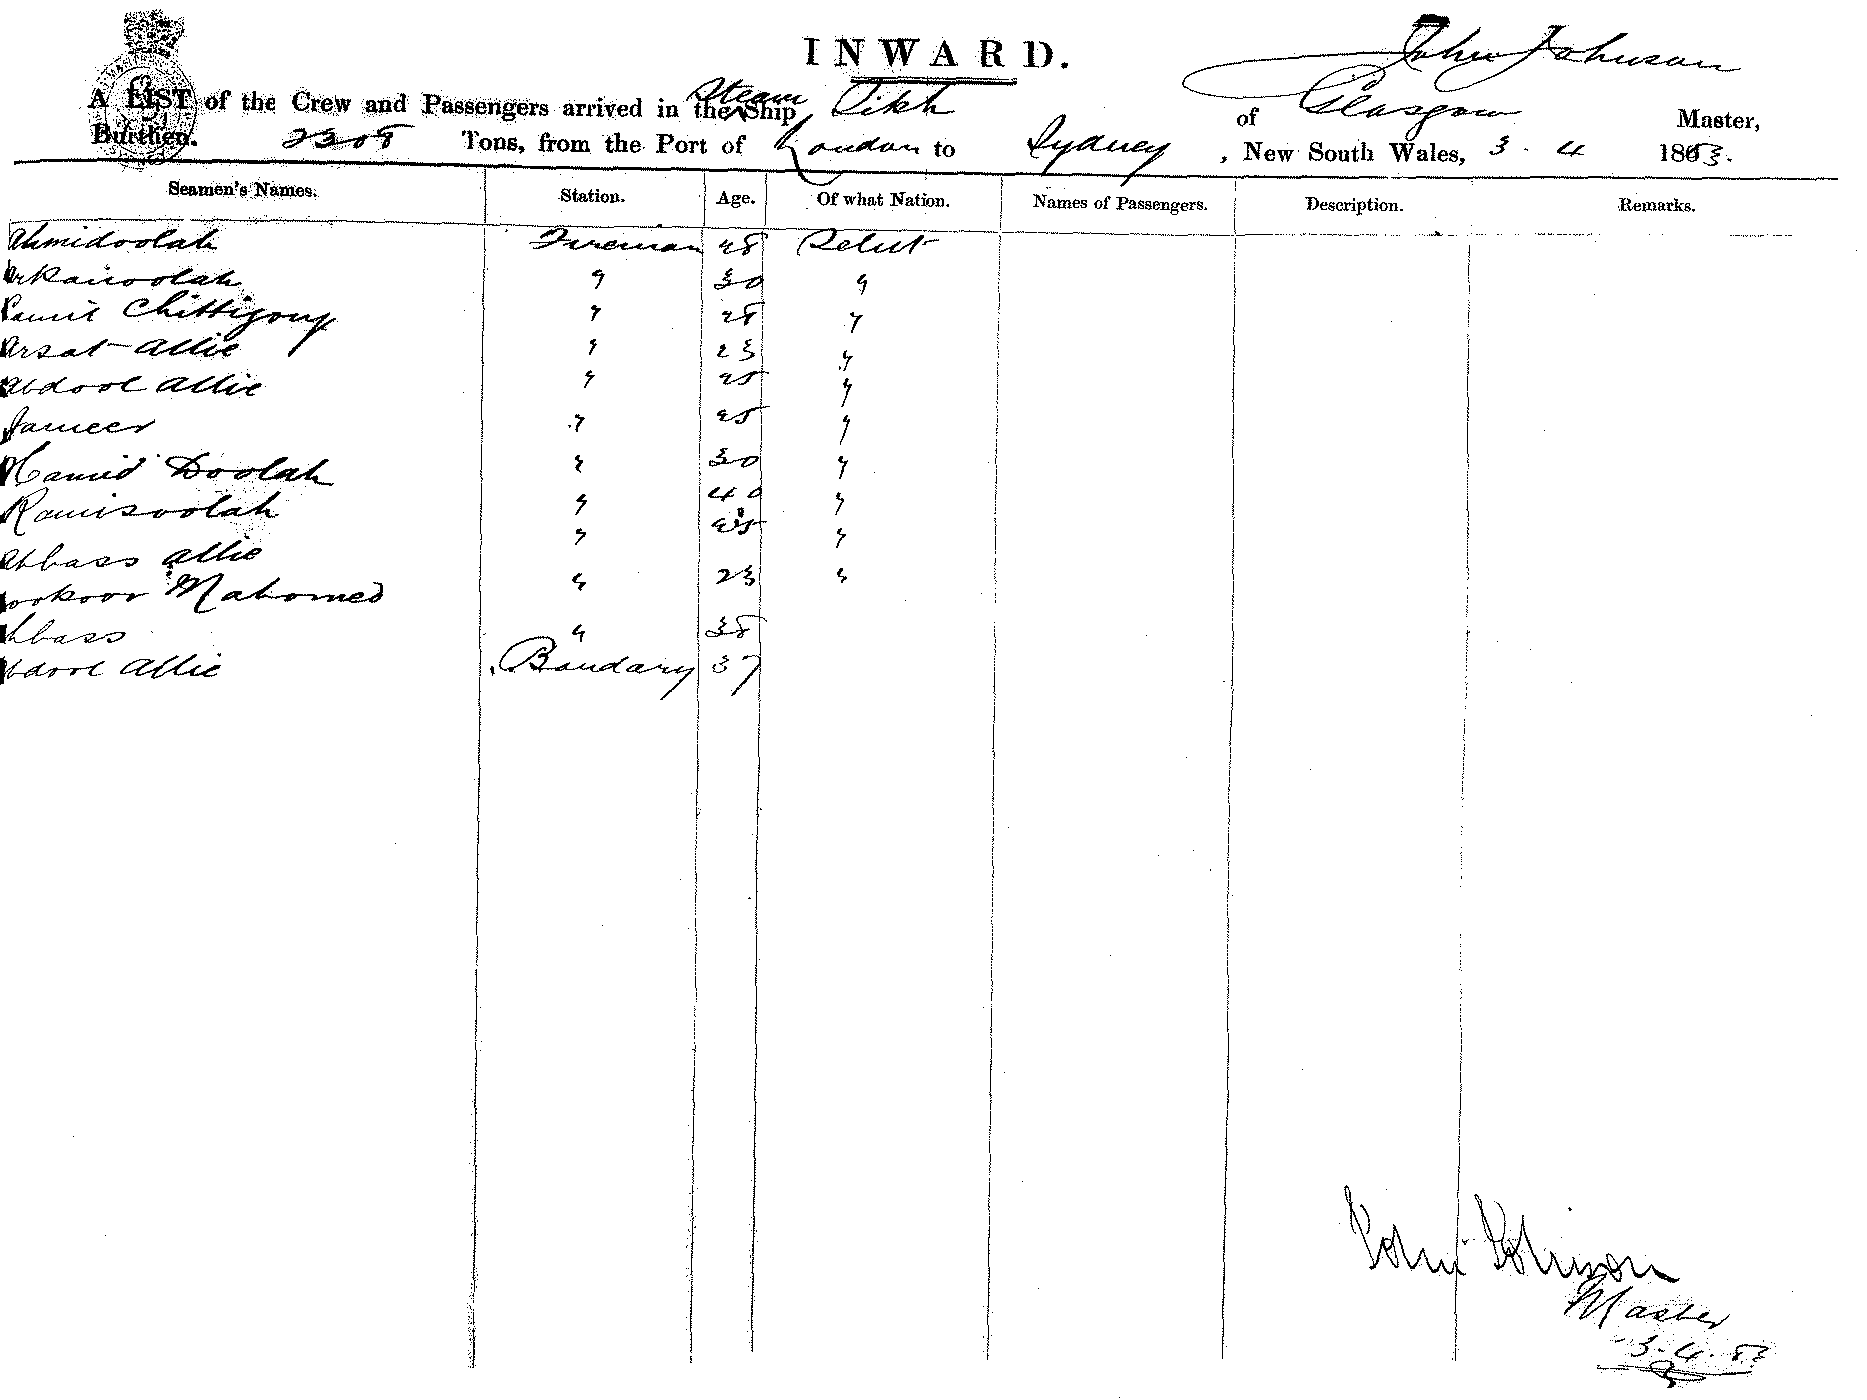 INWARD.
John Johnson
A LIST of the Crew and Passengers arrived in the Steam Ship Sikh of Glasgow Master,
Burthen. 2308 Tons, from the Port of London to Sydney, New South Wales, 3.4 1883.
Seamen's Names. Station. Age. Of what Nation. Names of Passengers. Description. Remarks.
Ahmidoolah Fireman 28
30
Chittigong 28
Arsat Allie 23
Abdool Allie 25
Jameer 25
Hamid Doolah 30
Ramisoolah 40
Abbass Allie 25
Mahomed 23
Abbass 38
Abdool Allie Bandary 37
John Johnson
Master
3.4.83